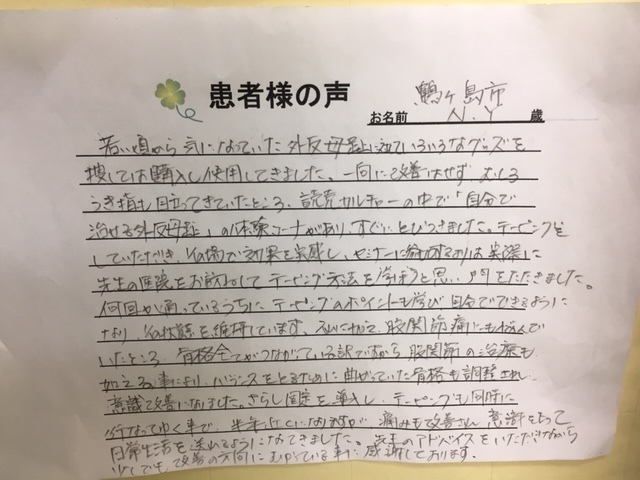 患者様の声
鶴ヶ島市
お名前 N.Y 歳
若い頃から気になっていた外反母趾に対していろいろなグッズを
捜しては購入し使用してきました。一向に改善はせず、むしろ
うき指も目立ってきていたところ、読売カルチャーの中で「自分で
治せる外反母趾」の体験コーナーがあり、すぐにとびつきました。テーピングを
していただき、その場で効果を実感し、セミナーに参加するよりは実際に
先生の医院をお訪ねしてテーピング方法を学ぼうと思い、門をたたきました。
何回か通っているうちにテーピングのポイントも学び自分でできるように
なり、その状態を維持しています。それに加えて、股関節痛にも悩んで
いたところ、骨格全てがつながっている訳ですから股関節の治療も
加える事により、バランスをとるために曲がっていた骨格も調整され
意識で改善になりました。さらし固定を導入し、テーピングも同時に
行なってゆく事で、半年近くになりますが、痛みも改善され 意識をもって
日常生活を送れるようになってきました。先生のアドバイスをいただきながら
少しでも、改善の方向にむかっている事に感謝しております。